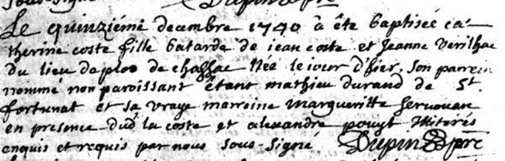 Le quinziéme decembre 1740 à éte baptisée ca-
therine coste fille batarde de jean coste et Jeanne Verilhac
du lieu de chassac Née le jour d'hier, son parrein
nomme non paroissant étant mathieu durand de St.
fortunat et sa vraye marreine margueritte
en presence dud. la coste et alexandre illiterés
enquis et requis par nous sous-signé. Dupin ptre